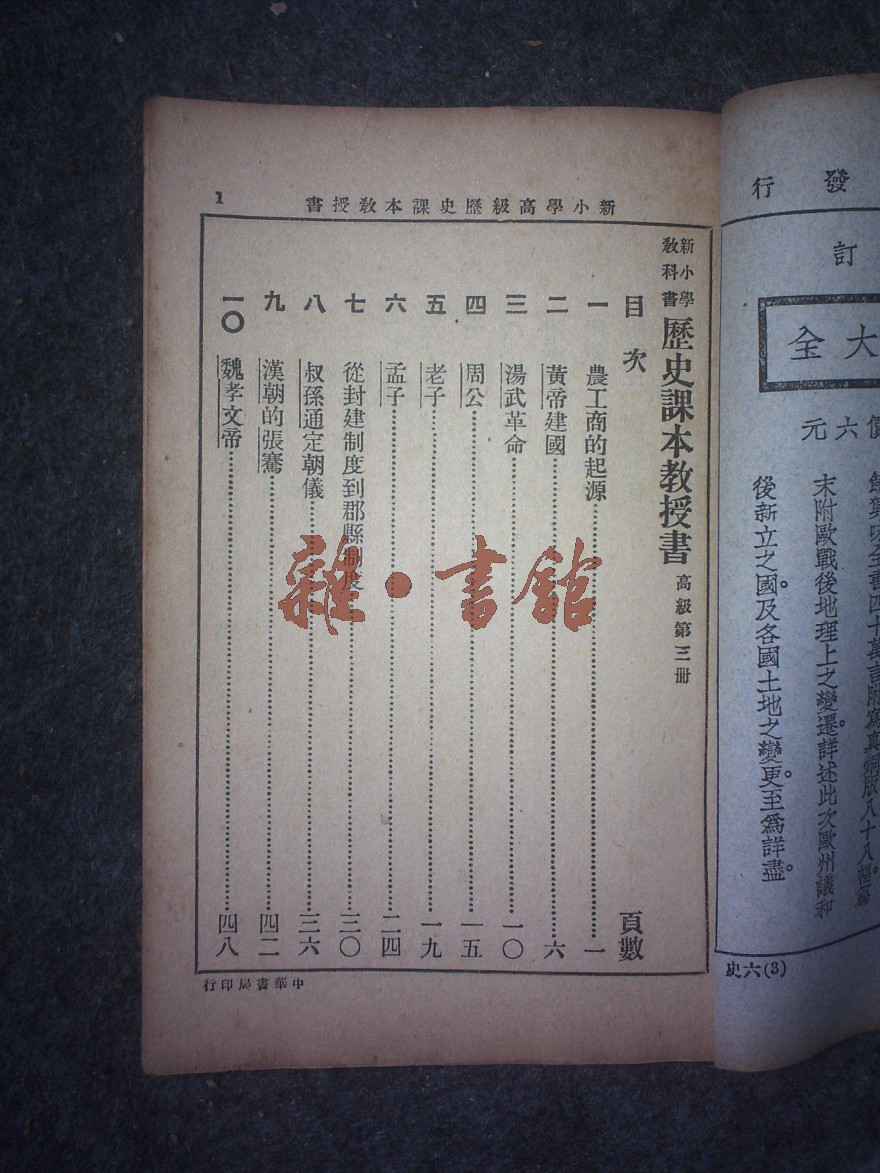 新小學高級歷史課本教授書
1
新小學教科書 歷史課本教授書 高級第三册
目次 頁數
一 農工商的起源 一
二 黃帝建國 六
三 湯武革命 一〇
四 周公 一五
五 老子 一九
六 孟子 二四
七 從封建制度到郡縣制度 三〇
八 叔孫通定朝儀 三六
九 漢朝的張騫 四二
一〇 魏孝文帝 四八
中華書局印行
雜·書館
發行
訂
大全
價六元
全書四十萬言附寫真銅版八十八幅篇
末附歐戰後地理上之變遷詳述此次歐州議和
後新立之國及各國土地之變更至爲詳盡。
史六(3)